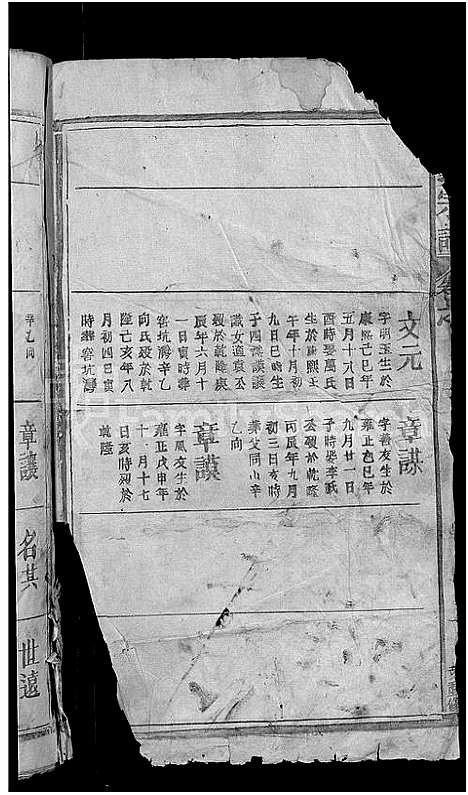 文元
字明玉生於
康熙己巳年
五月十八日
酉時娶萬氏
生於康熙壬
午年十月初
九日巳時生
子四謀謨護
議女適袁公
歿於乾隆庚
辰年六月十
一日寅時葬
窖坑灣辛乙
向氏歿於乾
隆丁亥年八
月初四日寅
時葬窖坑灣
章謀
字善友生於
雍正乙巳年
九月廿一日
子時娶李氏
公歿於乾隆
丙辰年九月
初三日亥時
葬父同山辛
乙向
章謨
字鳳友生於
雍正戊申年
十一月十七
日亥時歿於
乾隆
辛乙向
章護
名其
世遠